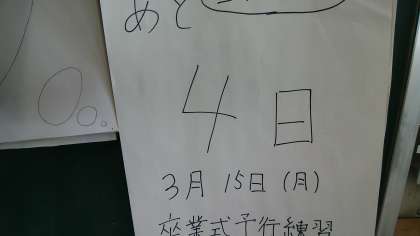 あと
4日
3月15日(月)
卒業式予行練習